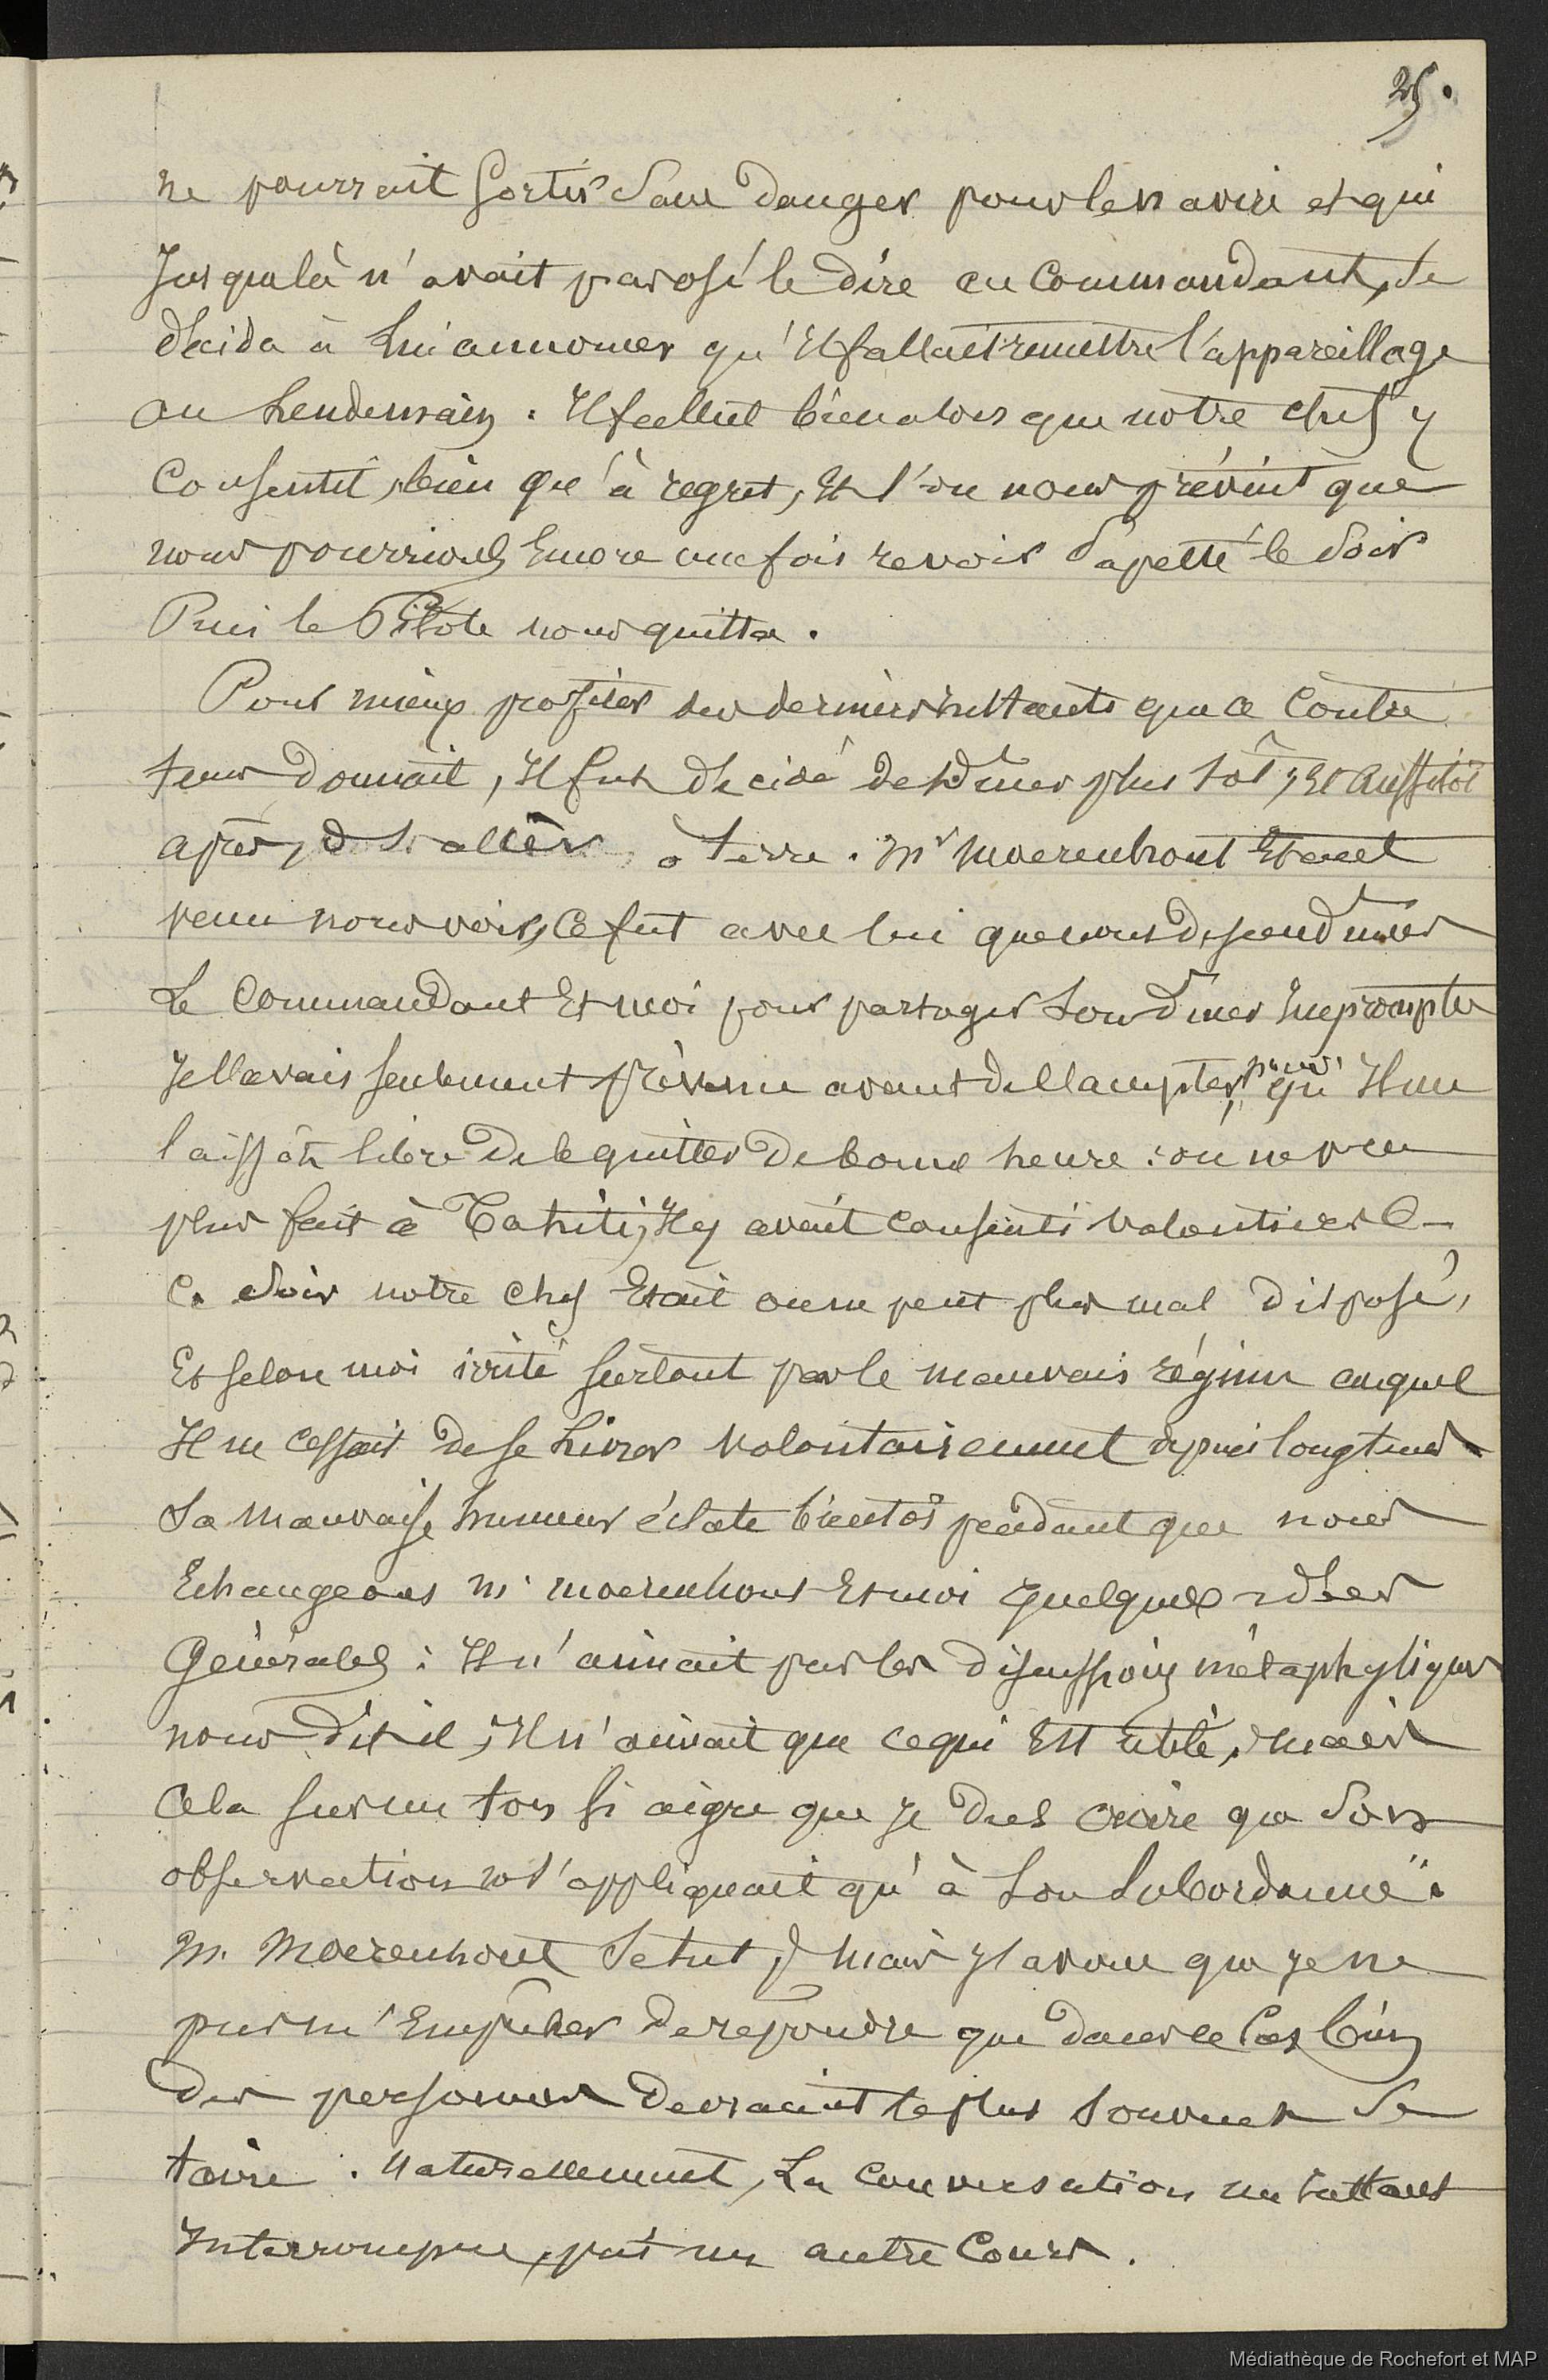 25.
ne pourrait sortir sans danger pour le navire et qui
Jusque là n'avait pas osé le dire au Commandant, se
décida à lui annoncer qu'Il fallait remettre l'appareillage
au Lendemain. Il fallut bien alors que notre chef y
Consentit, bien qu'à regret, Et l'on nous prévint que
nous pourrions Encore une fois revoir Papeïti le Soir
Puis le Pilote nous quitta.
Pour mieux profiter des derniers Instants que ce Contre
tems donnait, Il fut décidé de dîner plus tôt, Et aussitôt
après, d'aller à terre. Mr Moerenhout Etant
venu nous voir, Ce fut avec lui que nous descendîmes
Le Commandant Et moi pour partager Son dîner Impromptu
Je l'avais seulement prévenu avant de l'accepter, pour qu'Il me
laissât libre de le quitter de bonne heure : on ne peut
plus fait à Tahiti, Il y avait consenti volontiers
Ce Soir notre Chef Etait on ne peut plus mal disposé,
Et selon moi irrité surtout par le mauvais régime auquel
Il ne cessait de se Livrer volontairement depuis longtems
Sa mauvaise humeur éclate bientôt pendant que nous
Echangeons M. Moerenhout Et moi quelques idées
Générales : Il n'aimait pas les discussions métaphysiques
nous dit il, Il n'aimait que ce qui Est utile, mais
Cela sur un ton si aigre que Je dus croire que Son
observation ne s'appliquait qu'à Son Subordonné.
M. Moerenhout Se tut, mais J'avoue que Je ne
pus m'Empêcher de repondre que dans ce Cas bien
des personnes devraient le plus Souvent Se
taire. Naturellement, La Conversation un Instant
Interrompue, prit un autre Cours.
Médiathèque de Rochefort et MAP